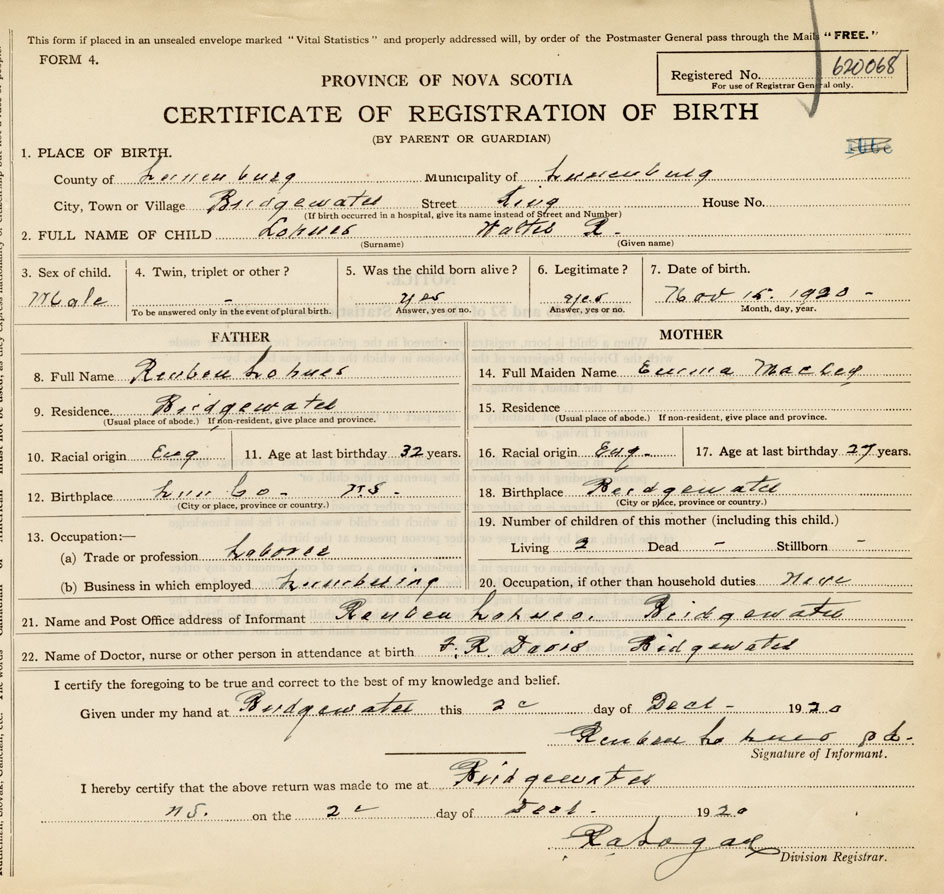 This form if placed in an unsealed envelope marked "Vital Statistics" and properly addressed will, by order of the Postmaster General pass through the Mails "FREE."
FORM 4.
Registered No. 620068
For use of Registrar General only.
PROVINCE OF NOVA SCOTIA
CERTIFICATE OF REGISTRATION OF BIRTH
(BY PARENT OR GUARDIAN)
1. PLACE OF BIRTH.
County of Lunenburg Municipality of Lunenburg
City, Town or Village Bridgewater Street King House No.
(If birth occurred in a hospital, give its name instead of Street and Number)
2. FULL NAME OF CHILD Lohnes Walter R.
(Surname) (Given name)
3. Sex of child. 4. Twin, triplet or other? 5. Was the child born alive? 6. Legitimate? 7. Date of birth.
Male - yes yes Nov 15. 1920 -
To be answered only in the event of plural birth. Answer, yes or no. Answer, yes or no. Month, day, year.
FATHER MOTHER
8. Full Name Reuben Lohnes 14. Full Maiden Name Emma
9. Residence. Bridgewater 15. Residence
(Usual place of abode.) If non-resident, give place and province. (Usual place of abode.) If non-resident, give place and province.
10. Racial origin Eng 11. Age at last birthday 32 years. 16. Racial origin Eng. 17. Age at last birthday 27 years.
12. Birthplace Lun Co - N.S. - 18. Birthplace Bridgewater
(City or place, province or country.) (City or place, province or country.)
13. Occupation:— 19. Number of children of this mother (including this child.)
(a) Trade or profession Laborer Living 2 Dead - Stillborn -
(b) Business in which employed Lumbering 20. Occupation, if other than household duties None
21. Name and Post Office address of Informant Reuben Lohnes. Bridgewater
22. Name of Doctor, nurse or other person in attendance at birth F. R. Davis Bridgewater
I certify the foregoing to be true and correct to the best of my knowledge and belief.
Given under my hand at Bridgewater this day of Dect - 1920
Reuben Lohnes
Signature of Informant.
I hereby certify that the above return was made to me at Bridgewater
NS. on the day of Dect. 1920
Division Registrar.